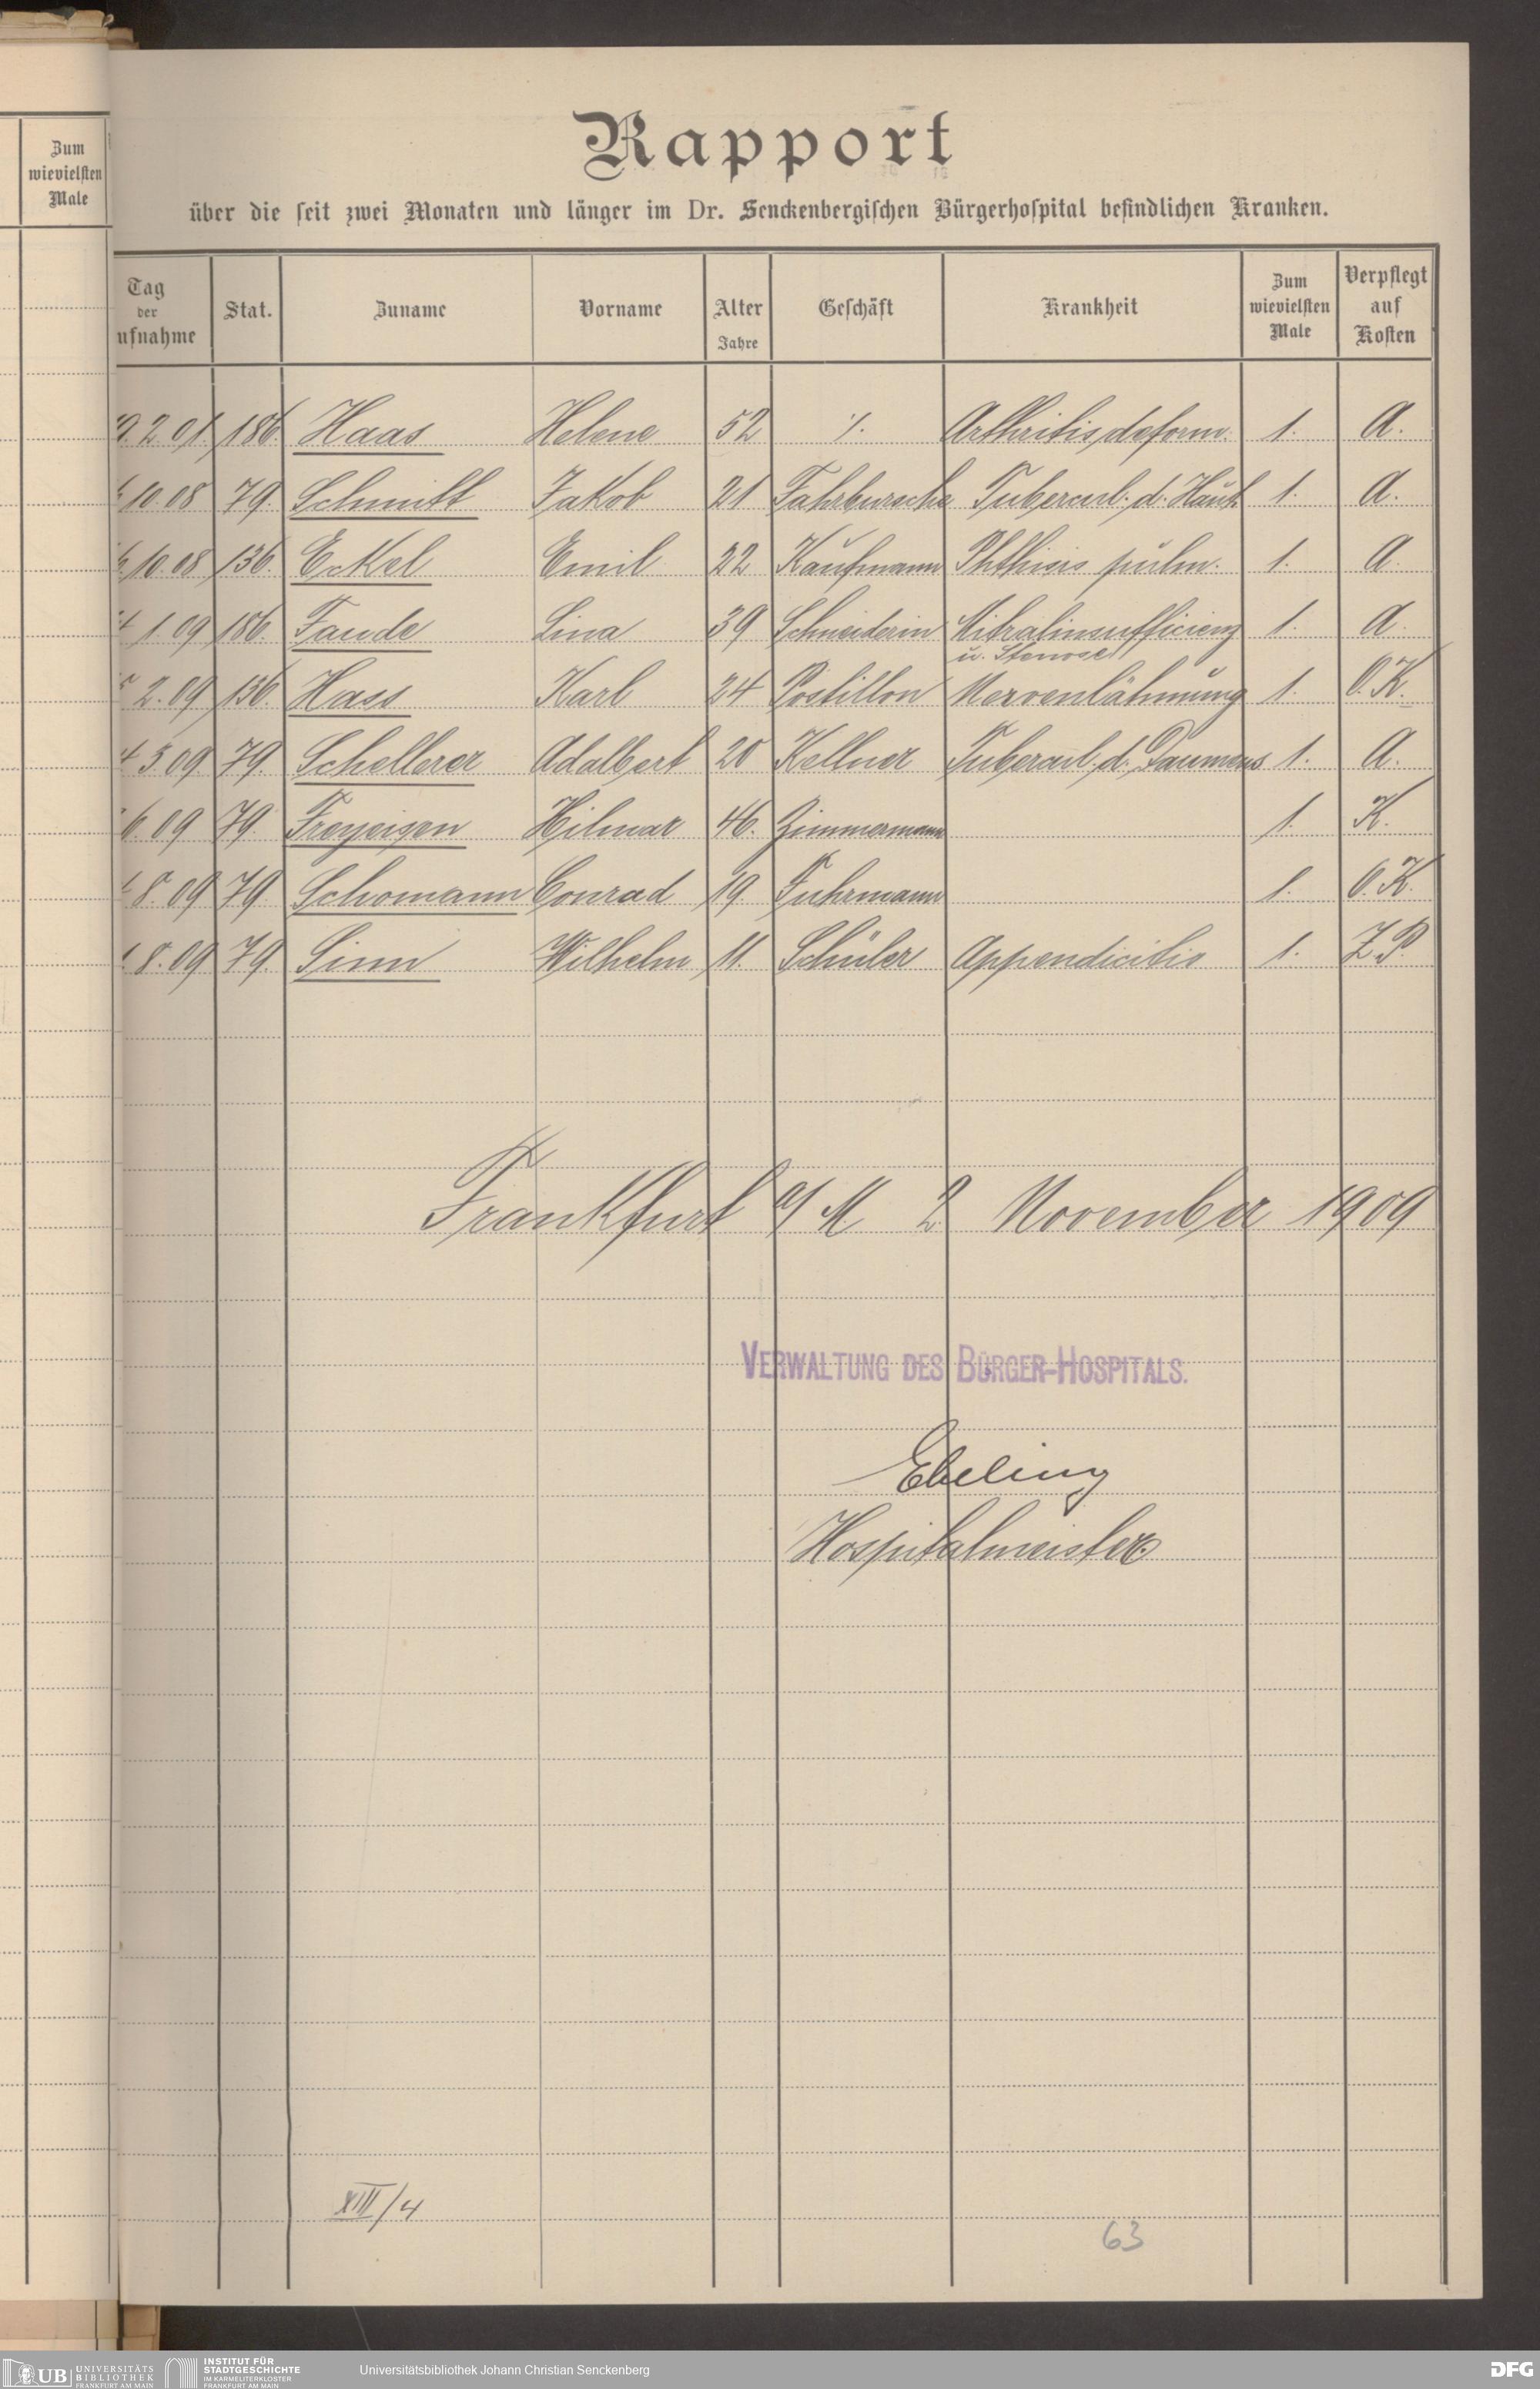 Zum
wievielsten
Male
Rapport
über die seit zwei Monaten und länger im Dr. Senckenbergischen Bürgerhospital befindlichen Kranken.
Tag der ufnahme Stat. Zuname Vorname Alter Jahre Geschäft Krankheit Zum wievielsten Male Verpflegt auf Kosten
2.01. 186. Haas Helene 52 ·/. Arthritis deform. 1. A.
10.08 79. Schmitt Jakob 21 Fahrbursche Tubercul. d. Haut 1. A.
10.08 136. Eckel Emil 22 Kaufmann Phthisis pulm. 1. A.
1.09 186. Faude Lina 39 Schneiderin Mitralinsufficienz u. Stenose 1. A.
2.09 136. Hass Karl 24 Postillon Nervenlähmung 1. O.K.
3.09 79. Schellerer Adalbert 20 Kellner Tubercul. d. Daumens 1. A.
6.09 79. Freyeisen Hilmar 46. Zimmermann 1. K.
8.09 79. Schomann Conrad 19. Fuhrmann 1. O.K.
8.09 79. Sinn Wilhelm 11. Schüler Appendicitis 1. Z.P.
Frankfurt a/M 2 November 1909
VERWALTUNG DES BÜRGER-HOSPITALS.
Ebeling
Hospitalmeister
XIII/4
63
UB UNIVERSITÄTS BIBLIOTHEK FRANKFURT AM MAIN
INSTITUT FÜR STADTGESCHICHTE IM KARMELITERKLOSTER FRANKFURT AM MAIN
Universitätsbibliothek Johann Christian Senckenberg
DFG